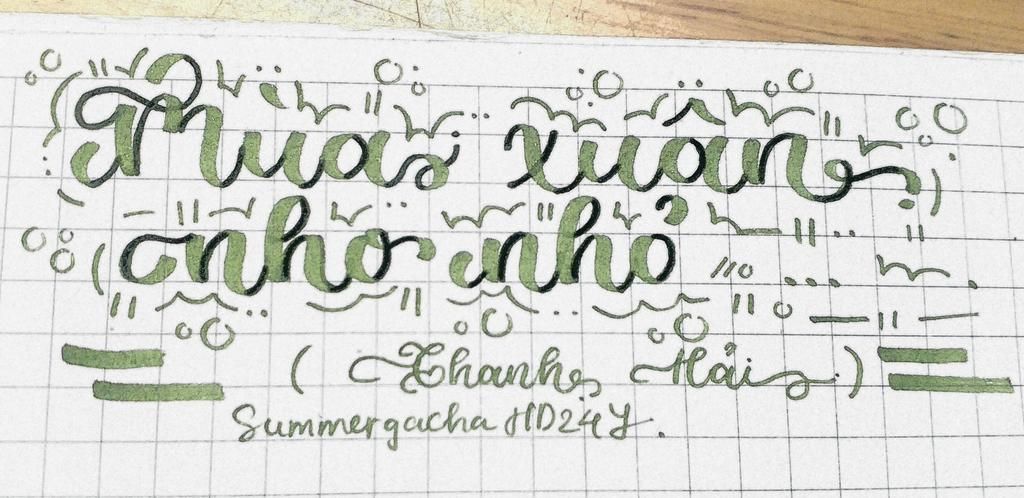 Mùa xuân
nho nhỏ
( Thanh Hải )
Summergacha HD24Y.